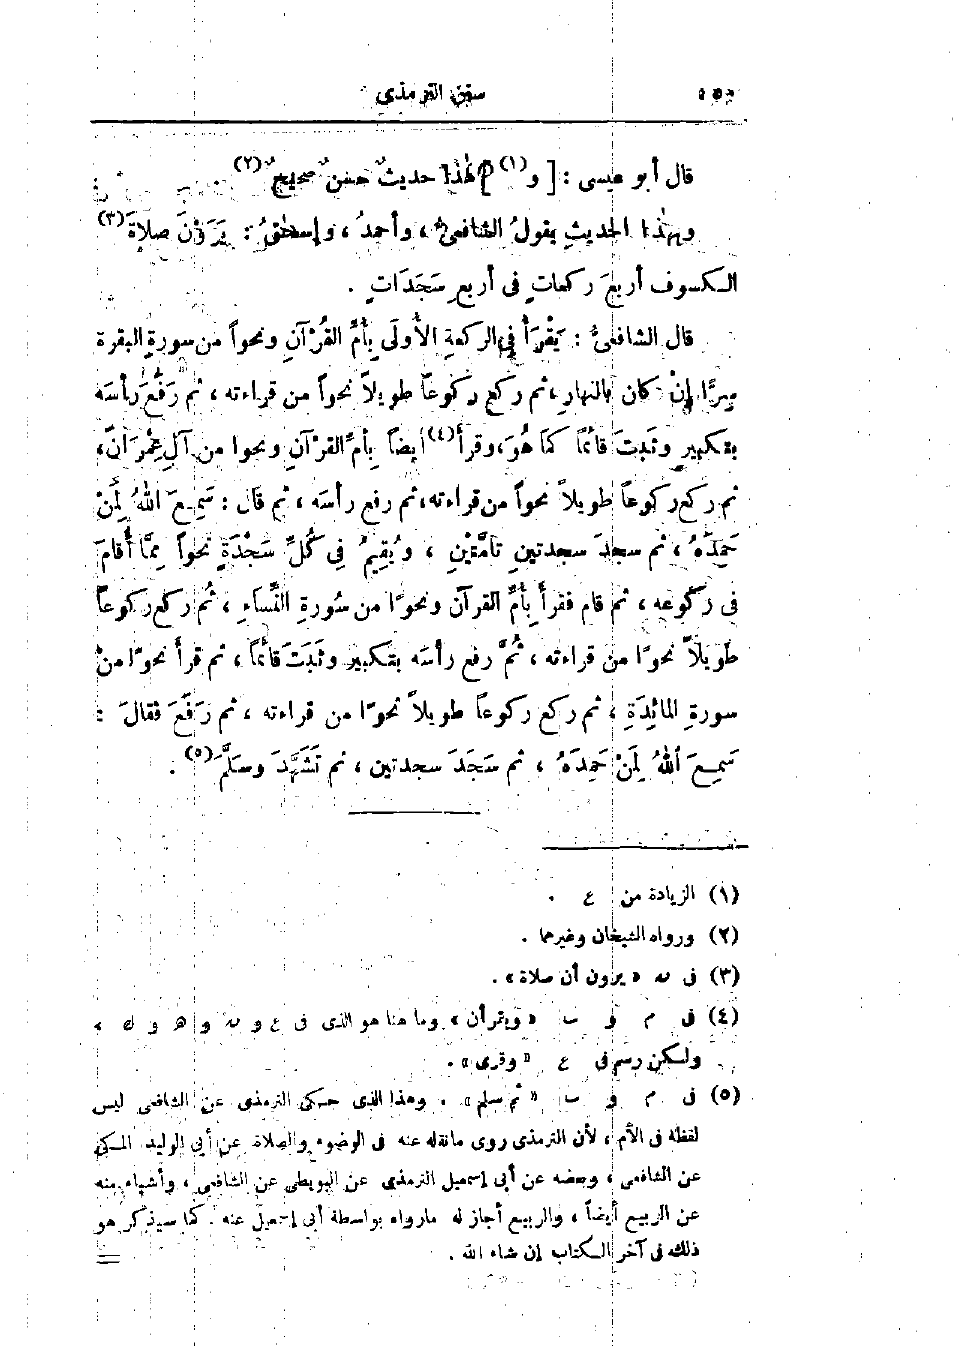 سنن الترمذي
قال أبو عيسى : [ و (١) ] هٰذا حديثٌ حسنٌ صحيحٌ (٢)
وبهٰذا الحديثِ يقولُ الشافعىُّ ، وأحمدُ ، وإسحٰقُ : يَرَوْنَ صلاةَ (٣)
الكسوف أربعَ ركعاتٍ فى أربعِ سَجَدَاتٍ .
قال الشافعىُّ : يَقْرَأُ فى الركعةِ الأُولَى بِأُمِّ القُرْآنِ ونحواً من سورةِ البقرة
سِرًّا إِنْ كان بالنهارِ ، ثم ركع ركوعاً طويلاً نحواً من قراءته ، ثم رَفَعَ رأسَه
بتكبيرٍ وثَبَتَ قائمًا كَمَا هُوَ ، وقرأَ (٤) أيضاً بِأُمِّ القرْآنِ ونحوا من آلِ عِمْرَانَ ،
ثم ركع ركوعاً طويلاً نحواً من قراءته ، ثم رفع رأسَه ، ثم قال : سَمِعَ اللهُ لِمَنْ
حَمِدَهُ ، ثم سجدَ سجدتينِ تامَّتَيْنِ ، ويُقِيمُ فِي كُلِّ سَجْدَةٍ نحواً مِمَّا أقامَ
فى ركوعه ، ثم قام فقرأَ بِأُمِّ القرآن ونحوًا من سُورةِ النِّساءِ ، ثُم ركع ركوعاً
طويلاً نحوًا من قراءته ، ثُمَّ رفع رأسَه بتكبيرٍ وثَبَتَ قائماً ، ثم قرأ نحوًا منْ
سورةِ المائدةِ ، ثم ركع ركوعاً طويلاً نحوًا من قراءته ، ثم رَفَعَ فقالَ :
سَمِعَ اللهُ لِمَنْ حَمِدَهُ ، ثم سَجَدَ سجدتين ، ثم تَشَهَّدَ وسَلَّمَ (٥) .
(١) الزيادة من ع .
(٢) ورواه الشيخان وغيرهما .
(٣) فى ﻪ « يرون أن صلاة » .
(٤) فى م و ب « ويقرأن » وما هنا هو الذى فى ع و ﻪ و ﻫ و ك ،
ولكن رسم فى ع « وقرى » .
(٥) فى م و ب « ثم سلم » . وهذا الذى حكى الترمذى عن الشافعى ليس
لفظه فى الأم ، لأن الترمذى روى مانقله عنه فى الوضوء والصلاة عن أبي الوليد المكى
عن الشافعى ، وبعضه عن أبى إسمعيل الترمذى عن البويطى عن الشافعى ، وأشياء منه
عن الربيع أيضاً ، والربيع أجاز له مارواه بواسطة أبى إسمعيل عنه . كما سيذكر هو
ذلك فى آخر الكتاب إن شاء الله .